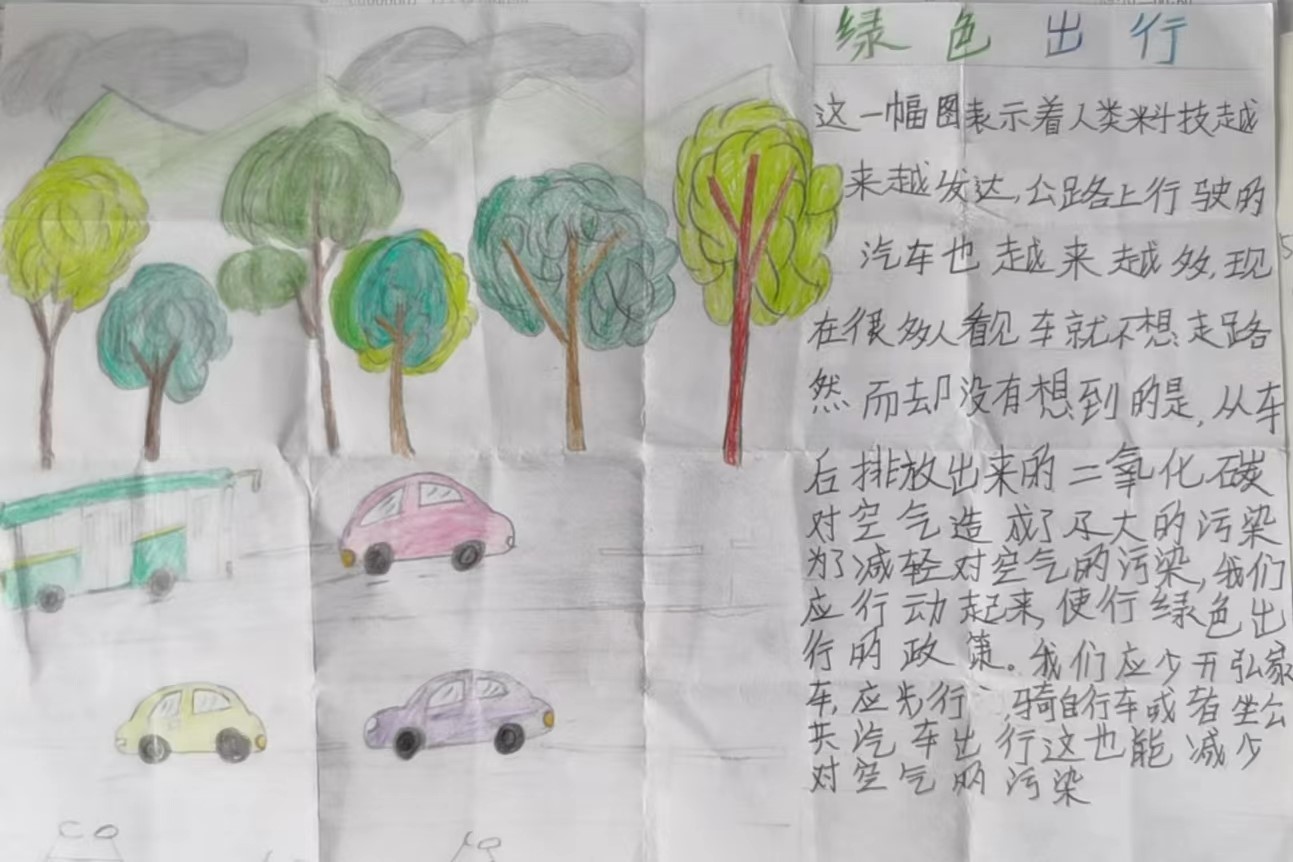 绿色出行
这一幅图表示着人类科技越
来越发达,公路上行驶的
汽车也越来越多,现
在很多人看见车就不想走路
然而去却没有想到的是,从车
后排放出来的二氧化碳
对空气造成了不大的污染
为了减轻对空气的污染,我们
应行动起来,使行绿色出
行的政策。我们应少开弘家
车,应先行、骑自行车或者坐公
共汽车出行这也能减少
对空气的污染
CO